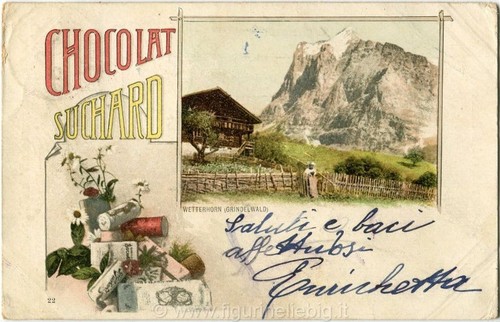 CHOCOLAT
SUCHARD
WETTERHORN (GRINDELWALD)
Saluti e baci
affettuosi
Enrichetta
22
© www.figurineliebig.it